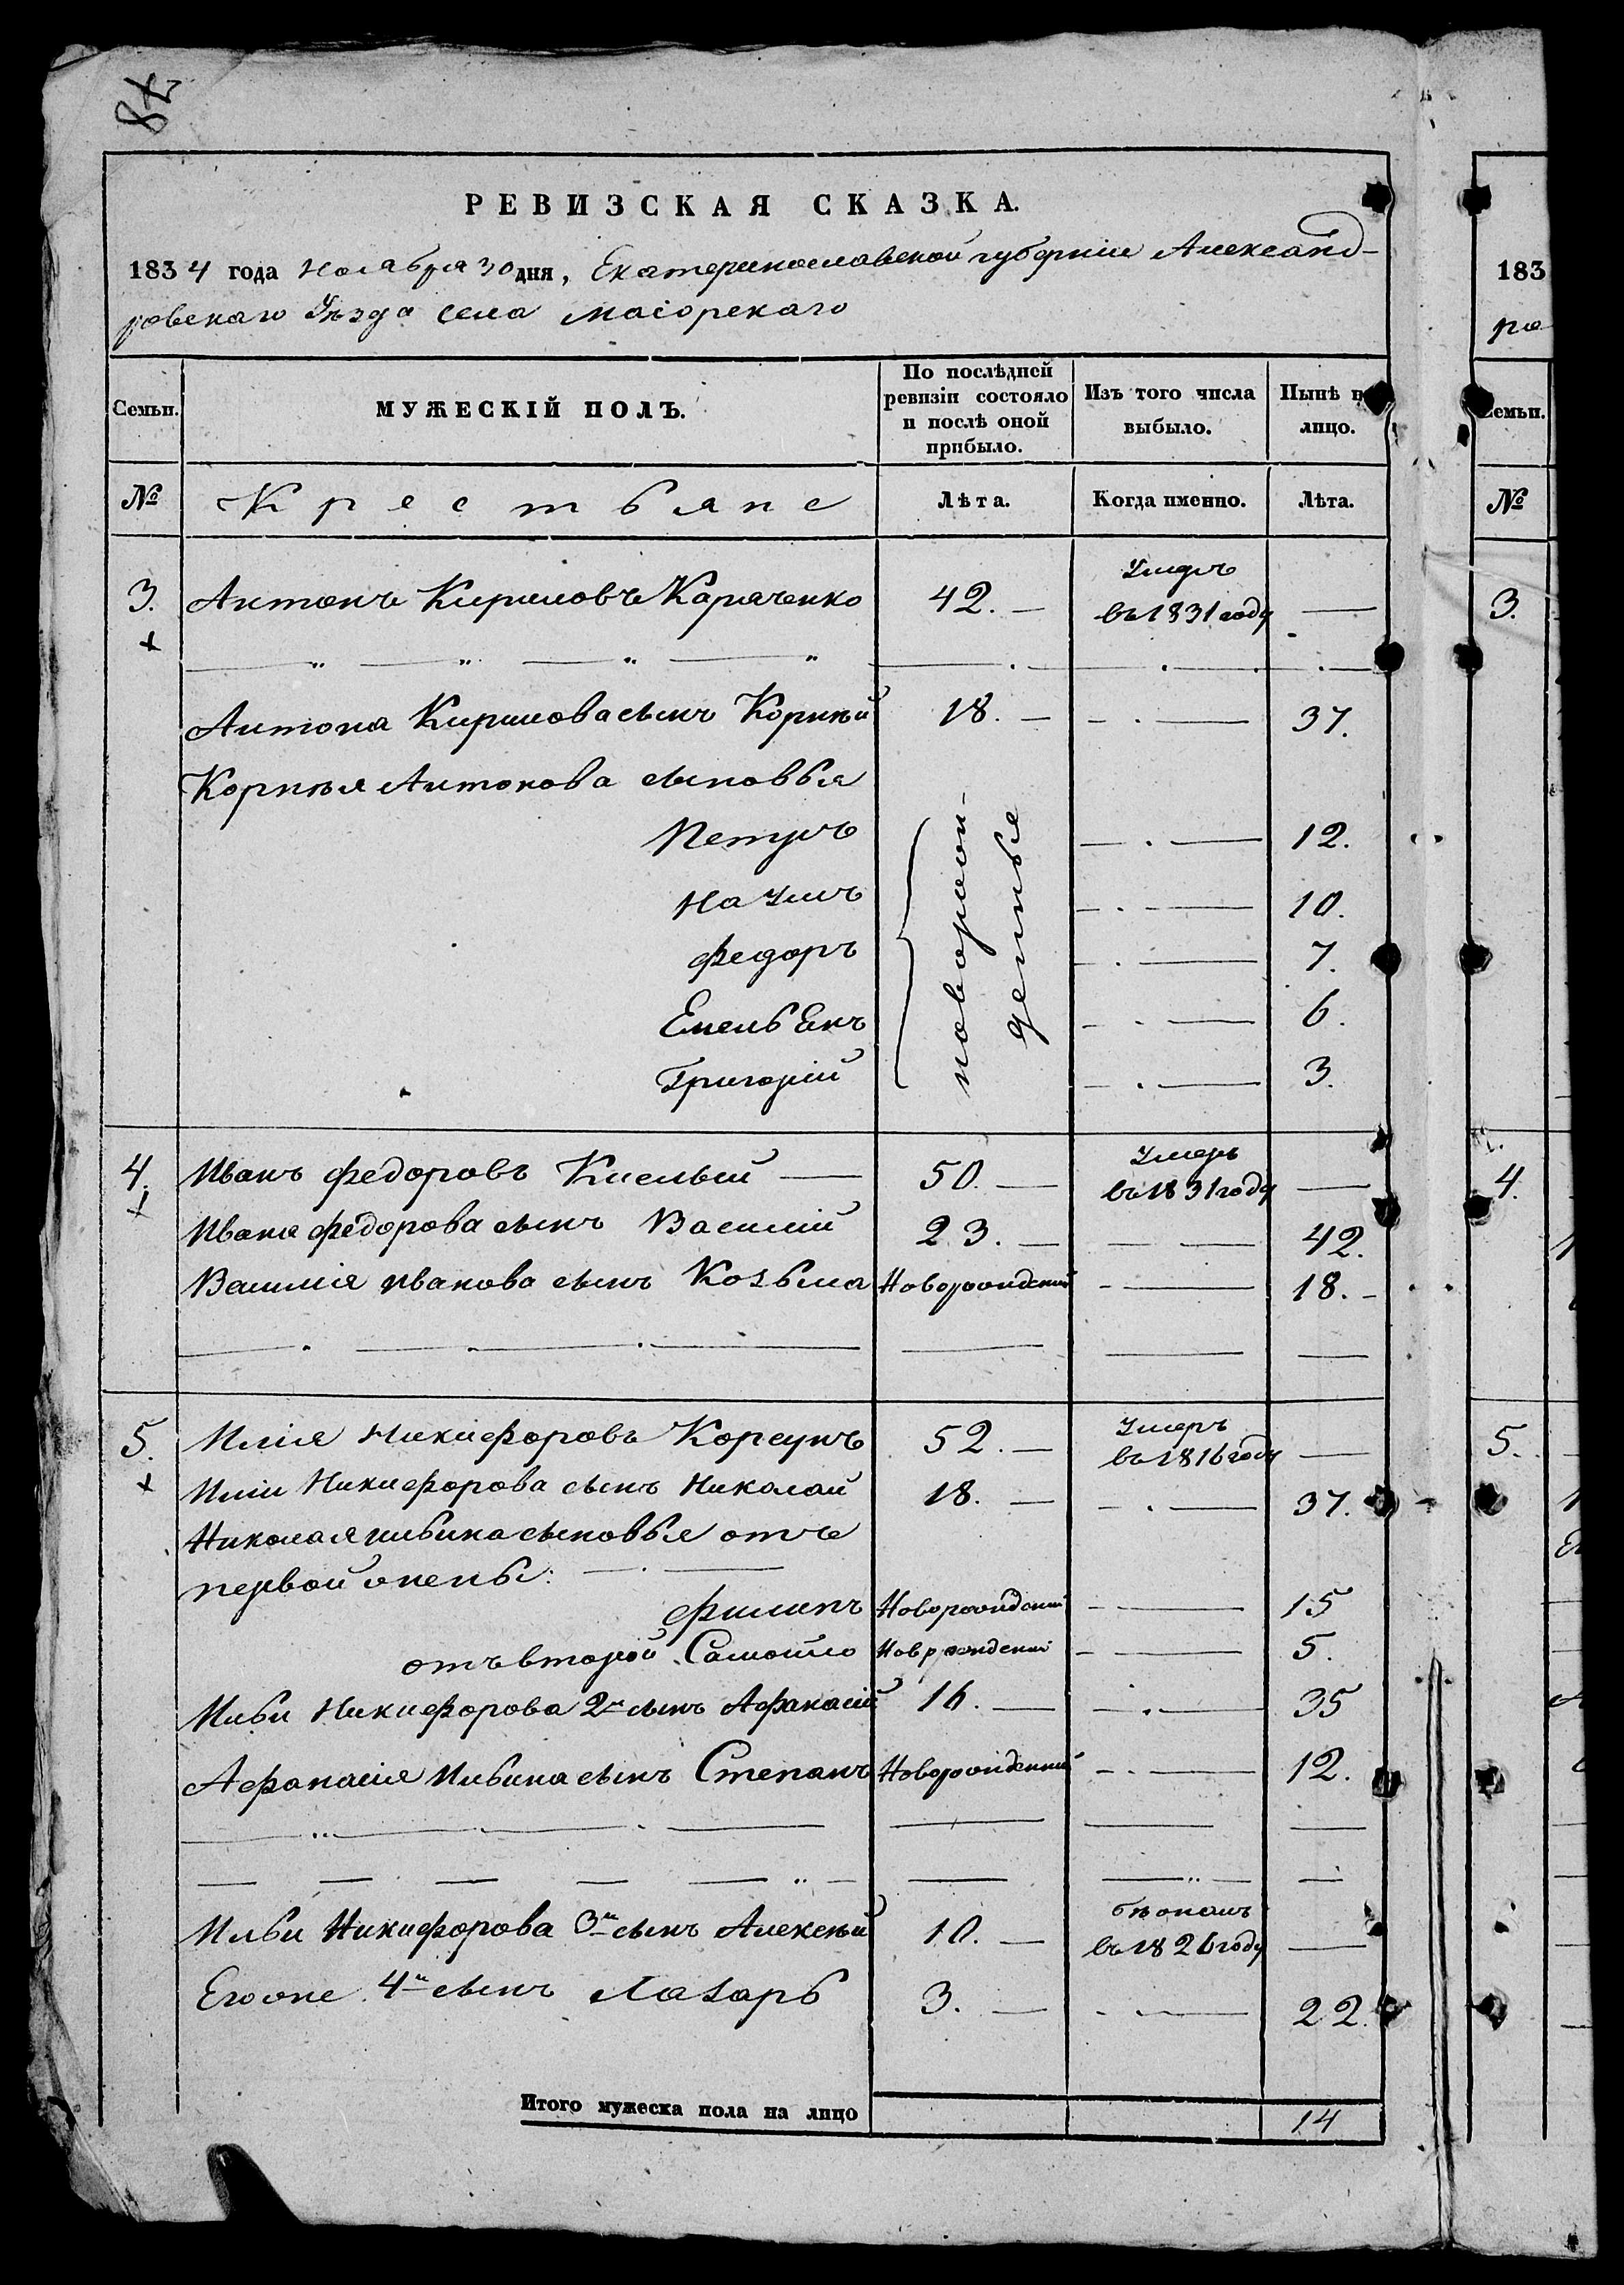 87
РЕВИЗСКАЯ СКАЗКА.
1834 года Ноября 30 дня, Екатеринославской губернии Александ-
ровскаго Уѣзда села Маіорскаго
Семьи. МУЖЕСКІЙ ПОЛЪ. По послѣдней ревизіи состояло и послѣ оной прибыло. Изъ того числа выбыло. Нынѣ на лицо.
№ Крестьяне Лѣта. Когда именно. Лѣта.
3. Антонъ Кириловъ Караченко 42. — Умеръ въ 1831 году —
Антона Кирилова сынъ Корнѣй 18. — 37.
Корнѣя Антонова сыновья
Петръ новорожденные 12.
Наумъ 10.
Федоръ 7.
Емельянъ 6.
Григорій 3.
4. Иванъ Федоровъ Кислый — 50. — Умеръ въ 1831 году —
Ивана Федорова сынъ Василій 23. — 42.
Василія Иванова сынъ Козьма Новорожденный 18. —
5. Илія Никифоровъ Корсунъ 52. — Умеръ въ 1816 году —
Иліи Никифорова сынъ Николай 18. — 37.
Николая Ильина сыновья отъ
первой жены:
Филипъ Новорожденный 15
отъ второй Самойло Новорожденный 5.
Ильи Никифорова 2й сынъ Афанасій 16. — 35
Афанасія Ильина сынъ Степанъ Новорожденный 12.
Ильи Никифорова 3й сынъ Алексѣй 10. — въ 1826 году —
Его же 4й сынъ Лазарь 3. — 22.
Итого мужеска пола на лицо 14
183
ро
Семьи.
№
3.
4.
5.